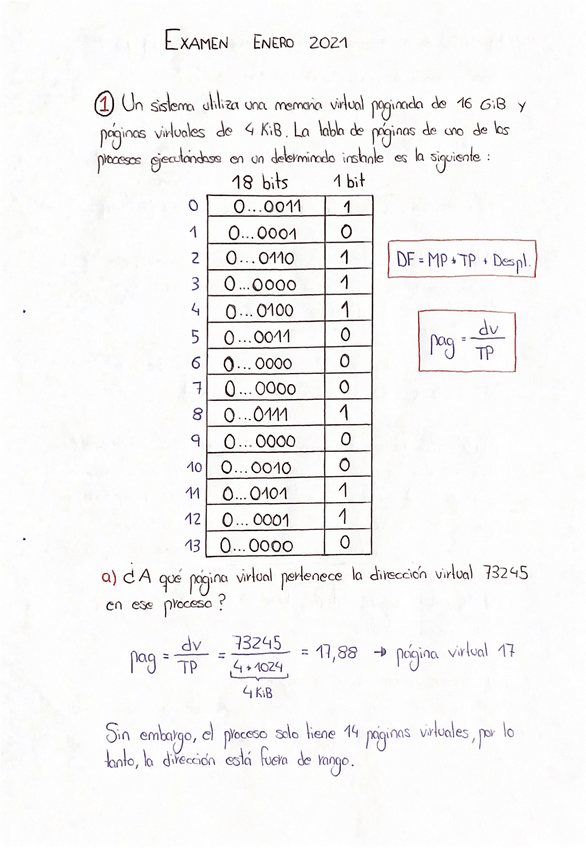 EXAMEN ENERO 2021
① Un sistema utiliza una memoria virtual paginada de 16 GiB y
páginas virtuales de 4 KiB. La tabla de páginas de uno de los
procesos ejecutándose en un determinado instante es la siguiente:
18 bits 1 bit
0 0...0011 1
1 0...0001 0
2 0...0110 1
3 0...0000 1
4 0...0100 1
5 0...0011 0
6 0...0000 0
7 0...0000 0
8 0...0111 1
9 0...0000 0
10 0...0010 0
11 0...0101 1
12 0...0001 1
13 0...0000 0
DF = MP * TP + Despl.
pag = dv / TP
a) ¿A qué página virtual pertenece la dirección virtual 73245
en ese proceso?
pag = dv / TP = 73245 / 4*1024 = 17,88 → página virtual 17
4 KiB
Sin embargo, el proceso solo tiene 14 páginas virtuales, por lo
tanto, la dirección está fuera de rango.